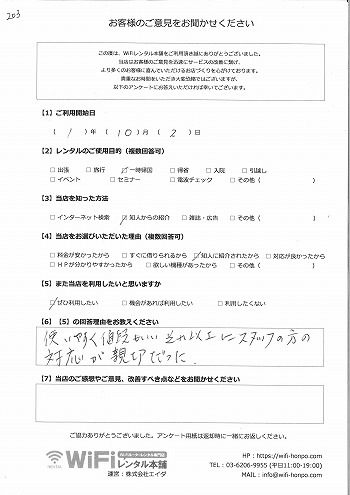 203
お客様のご意見をお聞かせください
この度は、WiFiレンタル本舗をご利用頂き誠にありがとうございました。
当店はお客様のご意見を迅速にサービスの改善に繋げ、
より多くのお客様に喜んでいただけるお店づくりを心がけております。
貴重なお時間をいただき大変恐縮ではございますが、
以下のアンケートにお答えいただければ幸いでございます。
【1】ご利用開始日
( 1 )年( 10 )月( 2 )日
【2】レンタルのご使用目的（複数回答可）
□出張 □旅行 ☑一時帰国 □帰省 □入院 □引越し
□イベント □セミナー □電波チェック □その他( )
【3】当店を知った方法
□インターネット検索 ☑知人からの紹介 □雑誌・広告 □その他( )
【4】当店をお選びいただいた理由（複数回答可）
□料金が安かったから □すぐに借りられるから ☑知人に紹介されたから □対応が良かったから
□HPが分かりやすかったから □欲しい機種があったから □その他( )
【5】また当店を利用したいと思いますか
☑ぜひ利用したい □機会があれば利用したい □利用したくない
【6】【5】の回答理由をお教えください
使いやすく値段もいい それ以上にスタッフの方の
対応が親切だった
【7】当店のご感想やご意見、改善すべき点などをお聞かせください
ご協力ありがとうございました。アンケート用紙は返却時に一緒にお返しください。
WiFi RENTAL WiFiルーターレンタル専門店
WiFiレンタル本舗
運営：株式会社エイダ
HP：https://wifi-honpo.com
TEL：03-6206-9955 (平日11:00-19:00)
MAIL：info@wifi-honpo.com